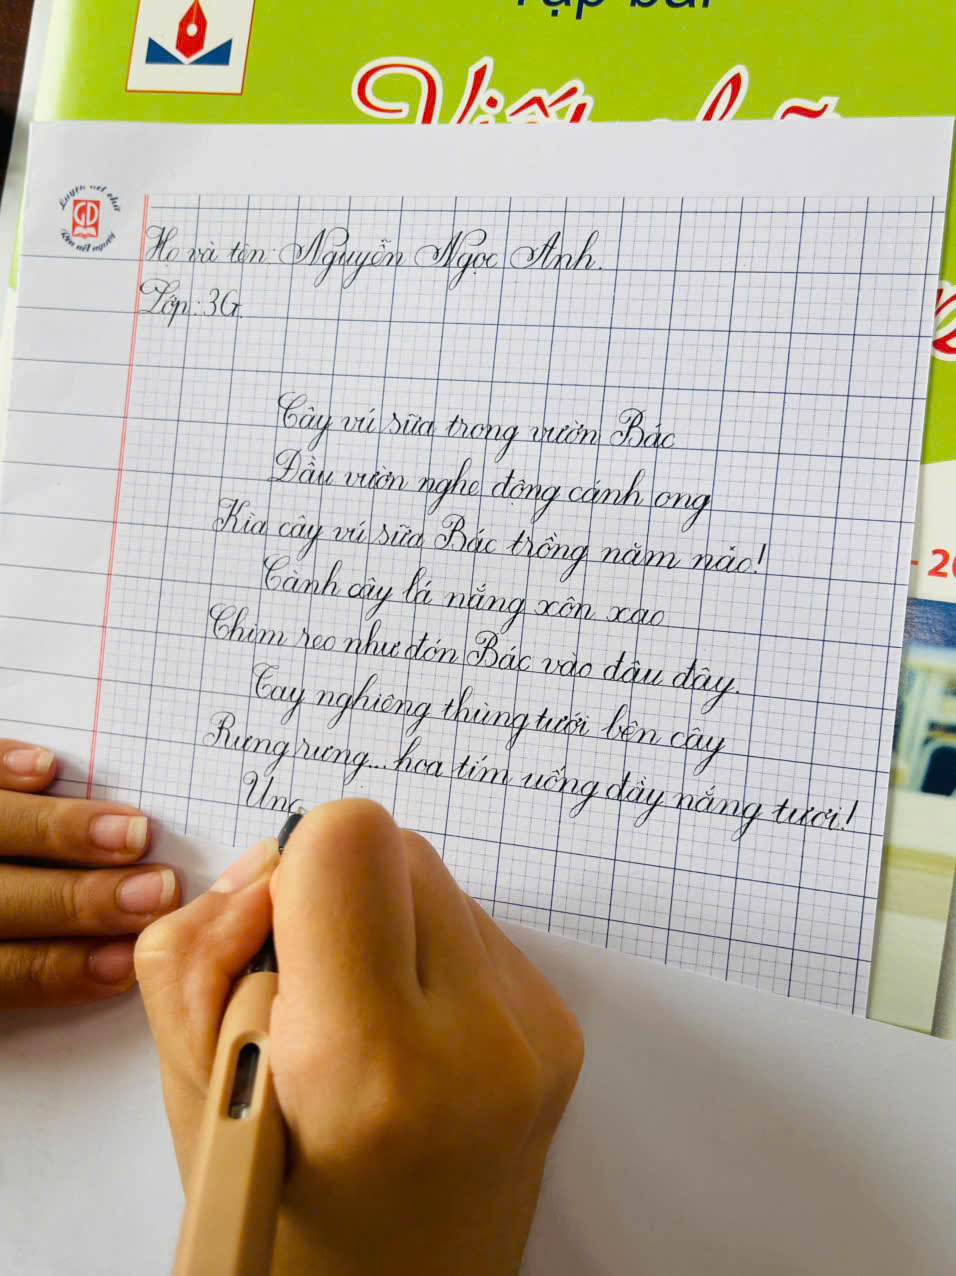 Tập bài
Viết chữ
Luyện nét chữ
GD
Rèn nét người
Họ và tên: Nguyễn Ngọc Anh.
Lớp: 3G.
Cây vú sữa trong vườn Bác
Đầu vườn nghe động cánh ong
Kìa cây vú sữa Bác trồng năm nào!
Cành cây lá nắng xôn xao
Chim reo như đón Bác vào đâu đây.
Tay nghiêng thùng tưới bên cây
Rưng rưng... hoa tím uống đầy nắng tươi!
Ưng
- 20